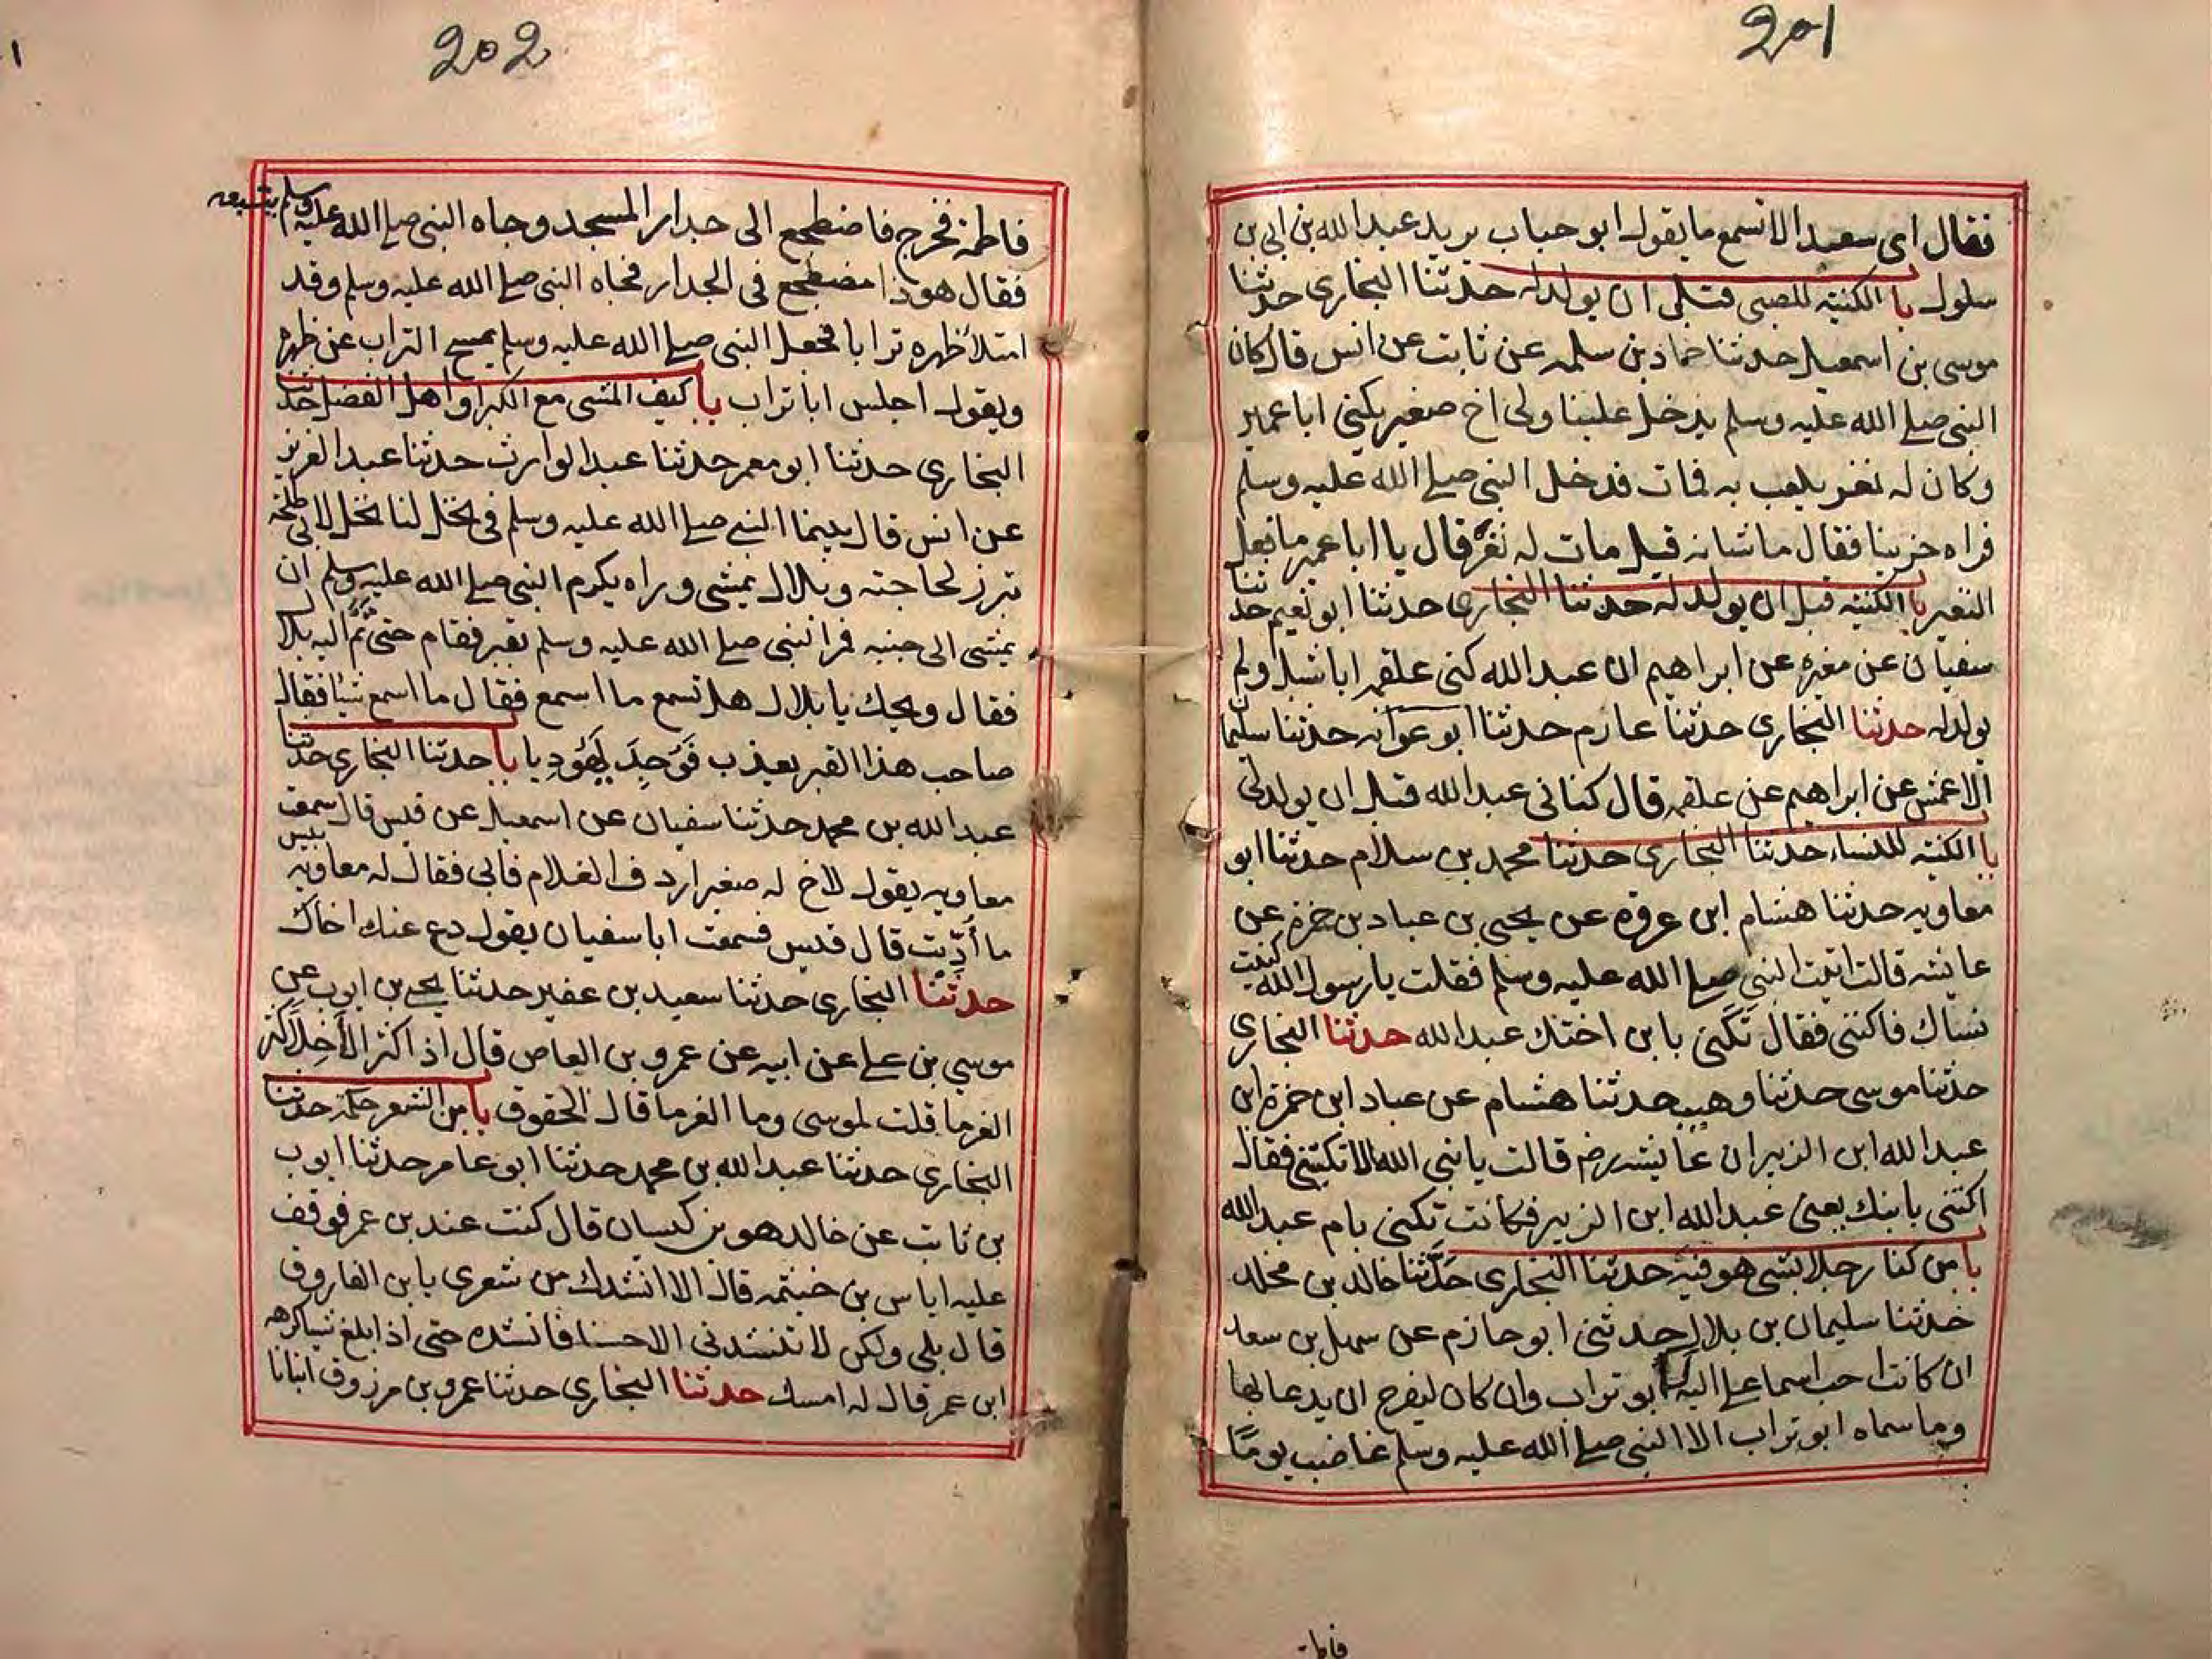 201
فقال اى سعيد الا تسمع ما يقول ابو حباب يريد عبد الله بن ابى بن
سلول با الكنية للصبى قبل ان يولد له حدثنا البخارى حدثنا
موسى بن اسمعيل حدثنا حماد بن سلمه عن ثابت عن انس قال كان
النبى صلى الله عليه وسلم يدخل علينا ولى اخ صغير يكنى ابا عمير
وكان له نغر يلعب به فمات فدخل النبى صلى الله عليه وسلم
فراه حزينا فقال ما شانه قيل مات له نغر فقال يا ابا عمير ما فعل
النغير با الكنيه قبل ان يولد له حدثنا البخارى حدثنا ابو نعيم حدثنا
سفيان عن مغيره عن ابراهيم ان عبد الله كنى علقمه ابا شبل ولم
يولد له حدثنا البخارى حدثنا عارم حدثنا ابو عوانه حدثنا سليما
الاعمش عن ابراهيم عن علقمه قال كنانى عبد الله قبل ان يولد لى
با الكنيه للنساء حدثنا البخارى حدثنا محمد بن سلام حدثنا ابو
معاويه حدثنا هشام ابن عروه عن يحيى بن عباد بن حمزه عن
عايشه قالت اتيت النبى صلى الله عليه وسلم فقلت يا رسول الله كنيت
نساك فاكننى فقال تكنى بابن اختك عبد الله حدثنا البخارى
حدثنا موسى حدثنا وهيب حدثنا هشام عن عباد ابن حمزة ابن
عبد الله ابن الزبير ان عايشه رضہ قالت يا نبى الله الا تكنينى فقال
اكتنى بابنك يعنى عبد الله ابن الزبير فكانت تكنى بام عبد الله
با من كنا رجلا بشى هو فيه حدثنا البخارى حدثنا خالد بن مخلد
حدثنا سليمان بن بلال حدثنى ابو حازم عن سهل بن سعد
ان كانت احب اسما على اليه ابو تراب وان كان ليفرح ان يدعا بها
وما سماه ابو تراب الا النبى صلى الله عليه وسلم غاضب يومًا
202
فاطمة فخرج فاضطجع الى جدار المسجد وجاه النبى صلى الله عليه وسلم يتبعه
فقال هو ذا مضطجع فى الجدار فجاه النبى صلى الله عليه وسلم وقد
امتلأ ظهره ترابا فجعل النبى صلى الله عليه وسلم يمسح التراب عن ظهره
ويقول اجلس ابا تراب با كيف المشى مع الكبرا واهل الفضل حدثنا
البخارى حدثنا ابو معمر حدثنا عبد الوارث حدثنا عبد العزيز
عن انس قال بينما النبى صلى الله عليه وسلم فى نخل لنا نخل لابى طلحه
تبرز لحاجته وبلال يمشى وراه يكرم النبى صلى الله عليه وسلم ان
يمشى الى جنبه فمر النبى صلى الله عليه وسلم بقبر فقام حتى تَمَّ اليه بلال
فقال ويحك يا بلال هل تسمع ما اسمع فقال ما اسمع شيًا فقال
صاحب هذا القبر يعذب فَوُجِدَ يَهُودِيا با حدثنا البخارى حدثنا
عبد الله بن محمد حدثنا سفيان عن اسمعيل عن قيس قال سمعت
معاويه يقول لاخ له صغير اردف الغلام فابى فقال له معاويه بيس
ما أُدِّبت قال قيس فسمعت ابا سفيان يقول دع عنك اخاك
حدثنا البخارى حدثنا سعيد بن عفير حدثنا يحيى بن ايوب عن
موسى بن على عن ابيه عن عمرو بن العاص قال اذا كثر الأخِلّا كثر
الغرما قلت لموسى وما الغرما قال الحقوق با من الشعر حكمة حدثنا
البخارى حدثنا عبد الله بن محمد حدثنا ابو عامر حدثنا ايوب
بن ثابت عن خالد هو بن كيسان قال كنت عند بن عمر فوقف
عليه اياس بن خيثمه قال الا انشدك من شعرى يا بن الفاروق
قال بلى ولكن لا تنشدنى الا حسنا فانشده حتى اذا بلغ شيا كرهه
ابن عمر قال له امسك حدثنا البخارى حدثنا عمرو بن مرزوق انبانا